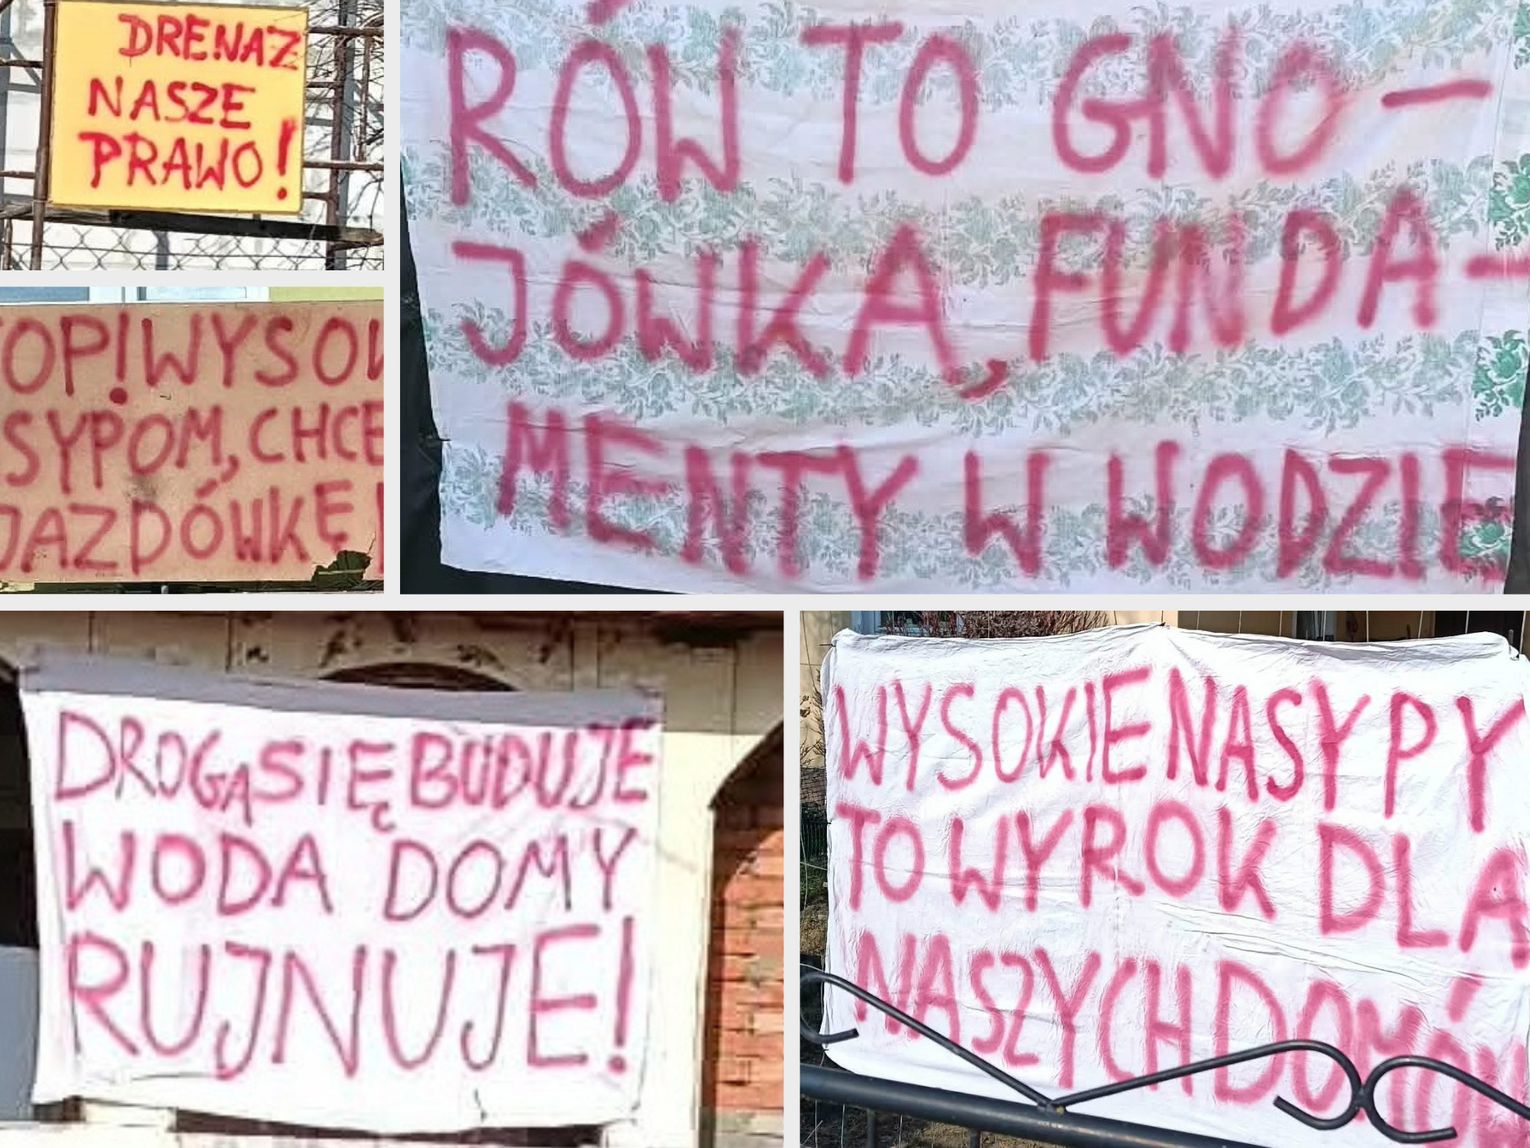 DRENAZ
NASZE
PRAWO!
RÓW TO GNO-
JÓWKA, FUNDA-
MENTY W WODZIE
OP! WYSOK
SYPOM, CHCE
JAZDÓWKĘ
DROGA SIĘ BUDUJE
WODA DOMY
RUJNUJE!
WYSOKIE NASYPY
TO WYROK DLA
NASZYCH DOMÓW